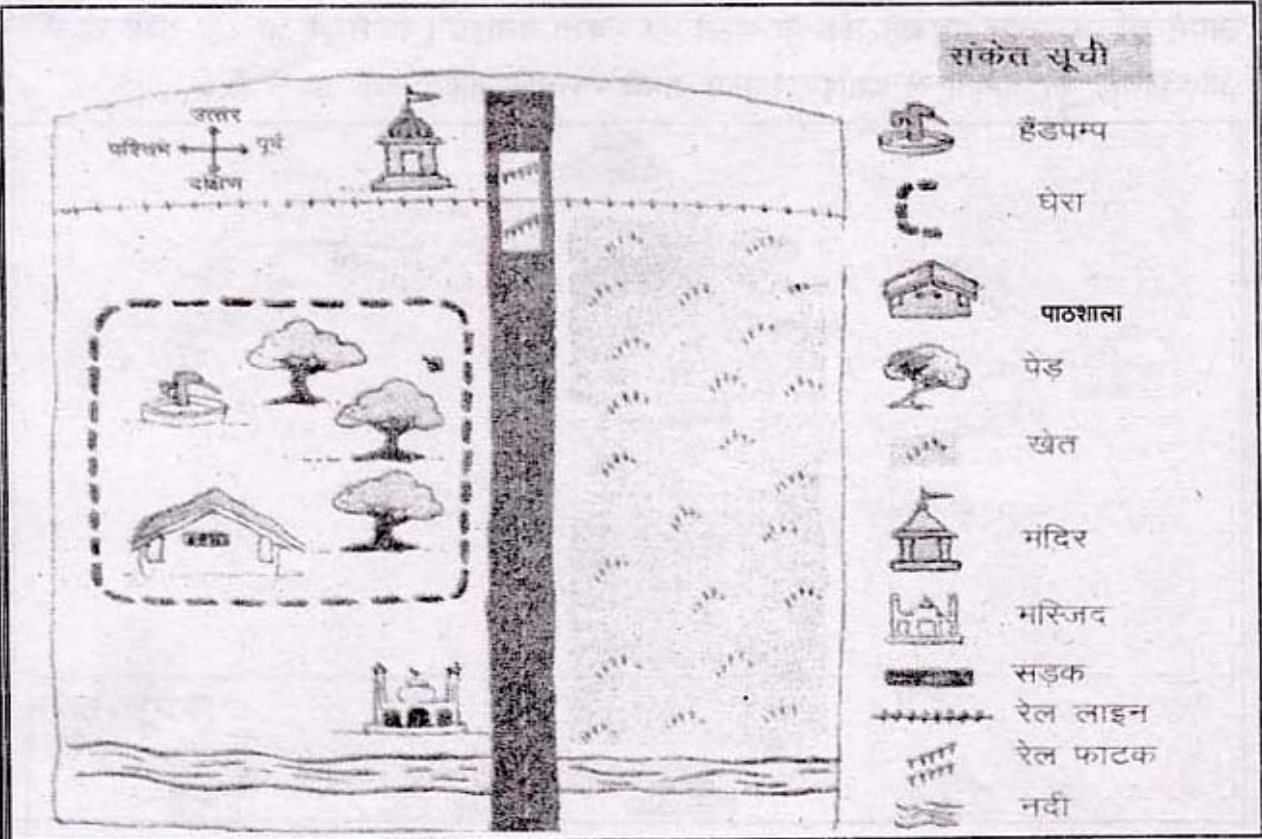 संकेत सूची
उत्तर
पश्चिम पूर्व
दक्षिण
हैंडपम्प
घेरा
पाठशाला
पेड़
खेत
मंदिर
मस्जिद
सड़क
रेल लाइन
रेल फाटक
नदी